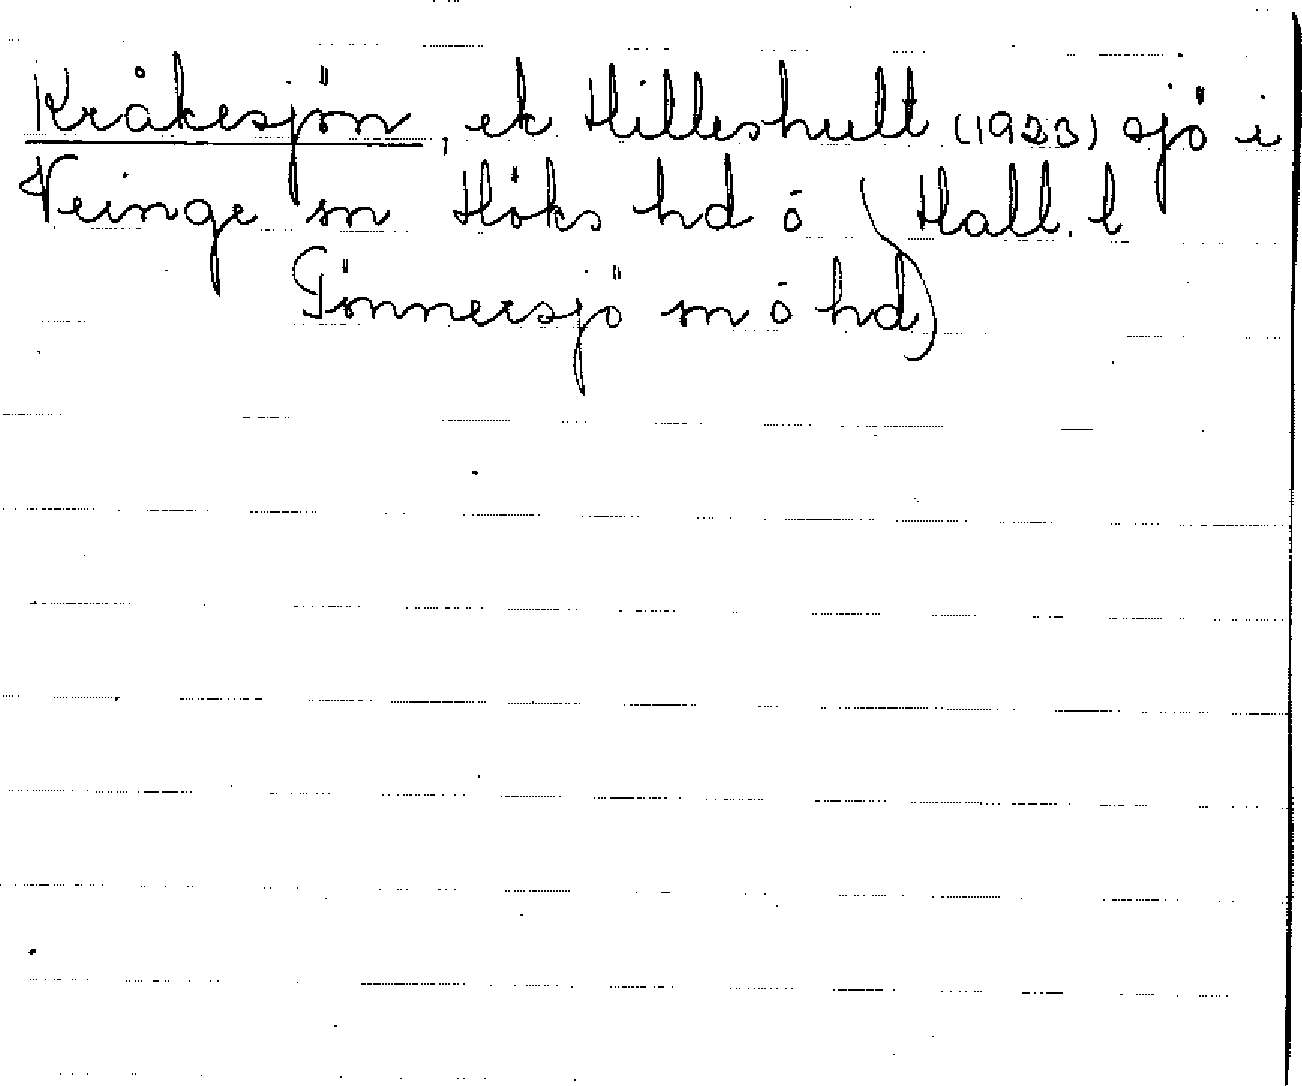 Kråkesjön, ek Hilleshult (1923) sjö i
Veinge sn Höks hd ö Hall. l
Tönnersjö sn ö hd)